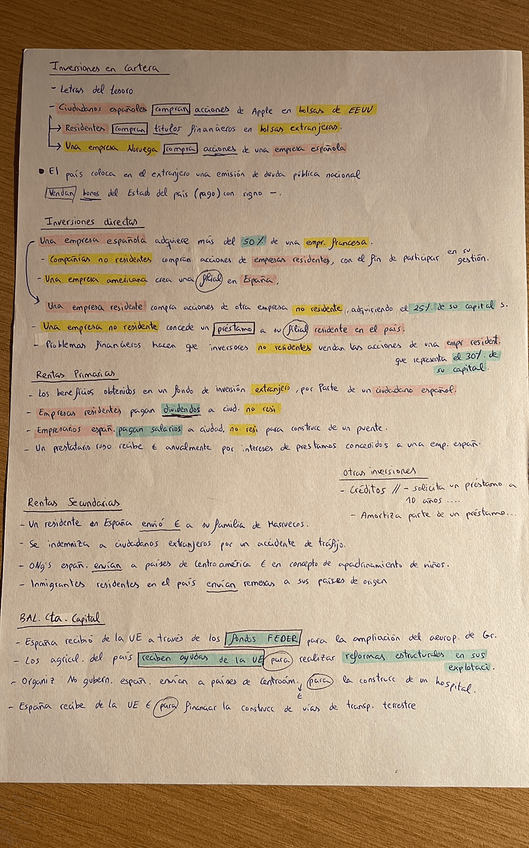 Inversiones en Cartera
- Letras del tesoro
- Ciudadanos españoles compran acciones de Apple en bolsas de EEUU
Residentes compran titulos financieros en bolsas extranjeras.
Una empresa Noruega compra acciones de una empresa española
• El país coloca en el extranjero una emisión de deuda pública nacional
Vendan bonos del Estado del país (pago) con signo -.
Inversiones directas
Una empresa española adquiere más del 50% de una empr. francesa.
- Compañías no residentes compran acciones de empresas residentes, con el fin de participar en su gestión.
- Una empresa americana crea una filial en España.
Una empresa residente compra acciones de otra empresa no residente, adquiriendo el 25% de su capital s.
- Una empresa no residente concede un préstamo a su filial residente en el país.
- Problemas financieros hacen que inversores no residentes vendan las acciones de una empr resident.
que representa el 30% de
su capital.
Rentas Primarias
- Los beneficios obtenidos en un fondo de inversión extranjero, por parte de un ciudadano español.
- Empresas residentes pagan dividendos a ciud. no resi
- Empresarios españ. pagan salarios a ciudad. no resi para construcc de un puente.
- Un prestatario ruso recibe € anualmente por intereses de prestamos concedidos a una emp. españ.
Otras inversiones
- Créditos // - solicita un préstamo a
10 años ....
- Amortiza parte de un préstamo...
Rentas Secundarias
- Un residente en España envió € a su familia de Marruecos.
- Se indemniza a ciudadanos extranjeros por un accidente de tráfijo.
- ONG's españ. envían a países de Centroamérica € en concepto de apadrinamiento de niños.
- Inmigrantes residentes en el país envían remesas a sus países de origen
BAL. Cta. Capital
- España recibió de la UE a través de los fondos FEDER para la ampliación del aeurop. de Gr.
- Los agricul. del país reciben ayudas de la UE para realizar reformas estructurales en sus
explotaci.
- Organiz No gubern. españ. envían a países de Centroam. € para la construcc de un hospital.
- España recibe de la UE € para financiar la construcc de vías de transp. terrestre